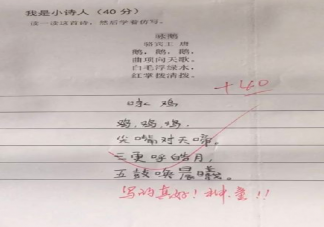 我是小诗人（40分）
读一读这首诗，然后学着仿写。
咏鹅
骆宾王 唐
鹅，鹅，鹅，
曲项向天歌。
白毛浮绿水，
红掌拨清波。
+40
咏鸡
鸡，鸡，鸡，
尖嘴对天啼。
三更呼皓月，
五鼓唤晨曦。
写的真好！